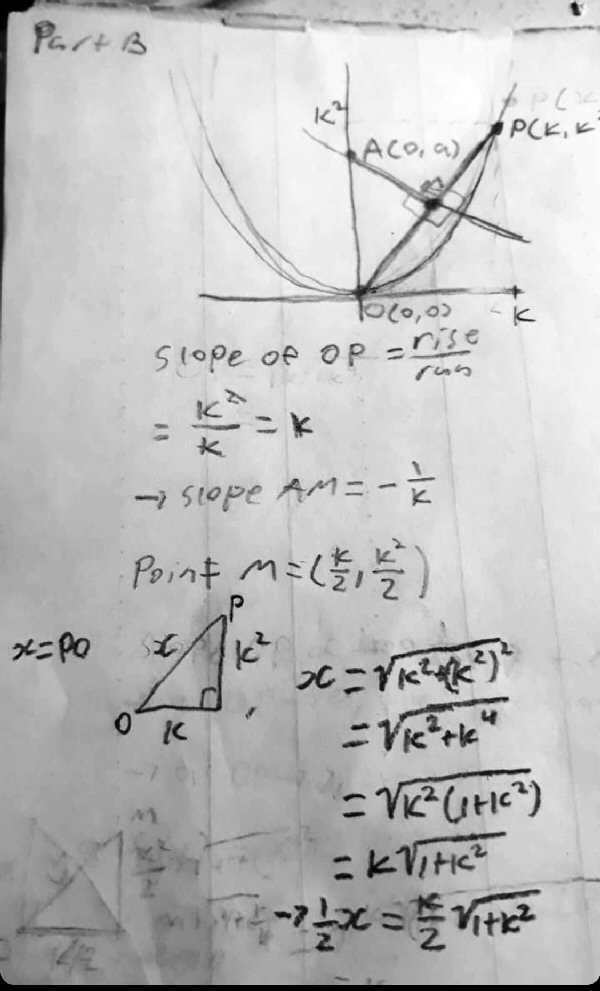 Part B
k²
A(0,a)
P(k, k²
M
O(0,0)
k
slope of OP = rise/run
= k²/k = k
→ slope AM = -1/k
Point M = (k/2, k²/2)
P
x = PO
x
k²
O
k
x = √(k²+(k²)²)
= √(k²+k⁴)
= √(k²(1+k²))
= k√(1+k²)
→ 1/2 x = k/2 √(1+k²)